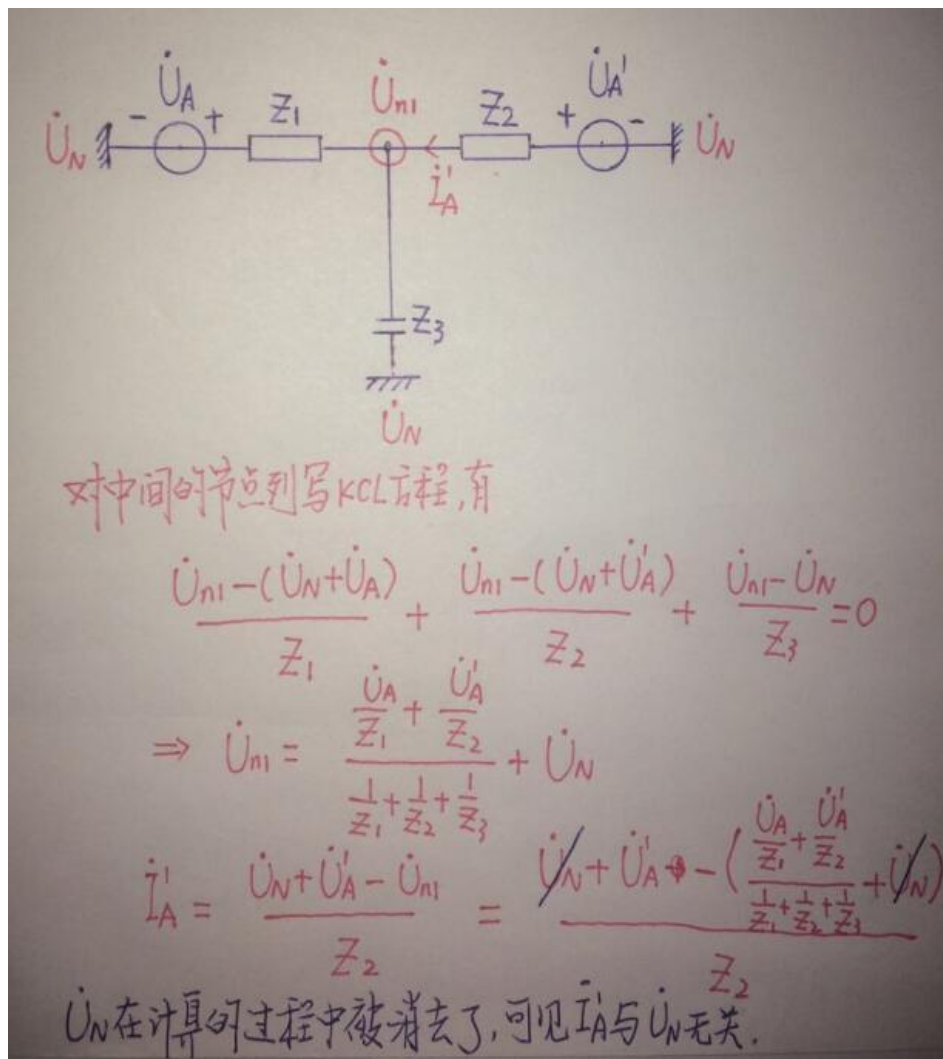 U̇A Z1 U̇n1 Z2 U̇A'
U̇N - + + - U̇N
İA'
Z3
U̇N
对中间的节点列写KCL方程,有
(U̇n1-(U̇N+U̇A))/Z1 + (U̇n1-(U̇N+U̇A'))/Z2 + (U̇n1-U̇N)/Z3 =0
⇒ U̇n1 = (U̇A/Z1 + U̇A'/Z2)/(1/Z1+1/Z2+1/Z3) + U̇N
İA' = (U̇N+U̇A'-U̇n1)/Z2 = (U̇N+U̇A' - ((U̇A/Z1+U̇A'/Z2)/(1/Z1+1/Z2+1/Z3) +U̇N))/Z2
U̇N在计算的过程中被消去了,可见İA'与U̇N无关.